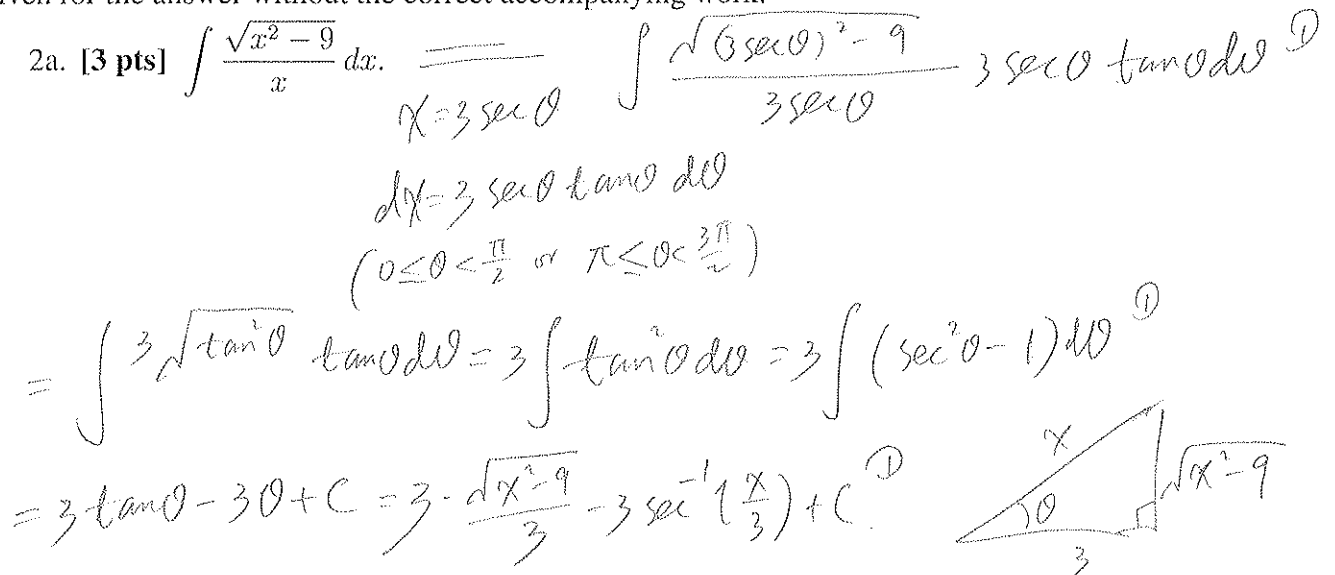 iven for the answer without the correct accompanying work.
2a. [3 pts] ∫ √(x² − 9) / x dx. = ∫ √((3 secθ)² − 9) / (3 secθ) · 3 secθ tanθ dθ ①
x = 3 secθ
dx = 3 secθ tanθ dθ
(0 ≤ θ < π/2 or π ≤ θ < 3π/2)
= ∫ 3 √(tan²θ) tanθ dθ = 3 ∫ tan²θ dθ = 3 ∫ (sec²θ − 1) dθ ①
= 3 tanθ − 3θ + C = 3 · √(x² − 9) / 3 − 3 sec⁻¹(x/3) + C. ①
x
√(x² − 9)
θ
3